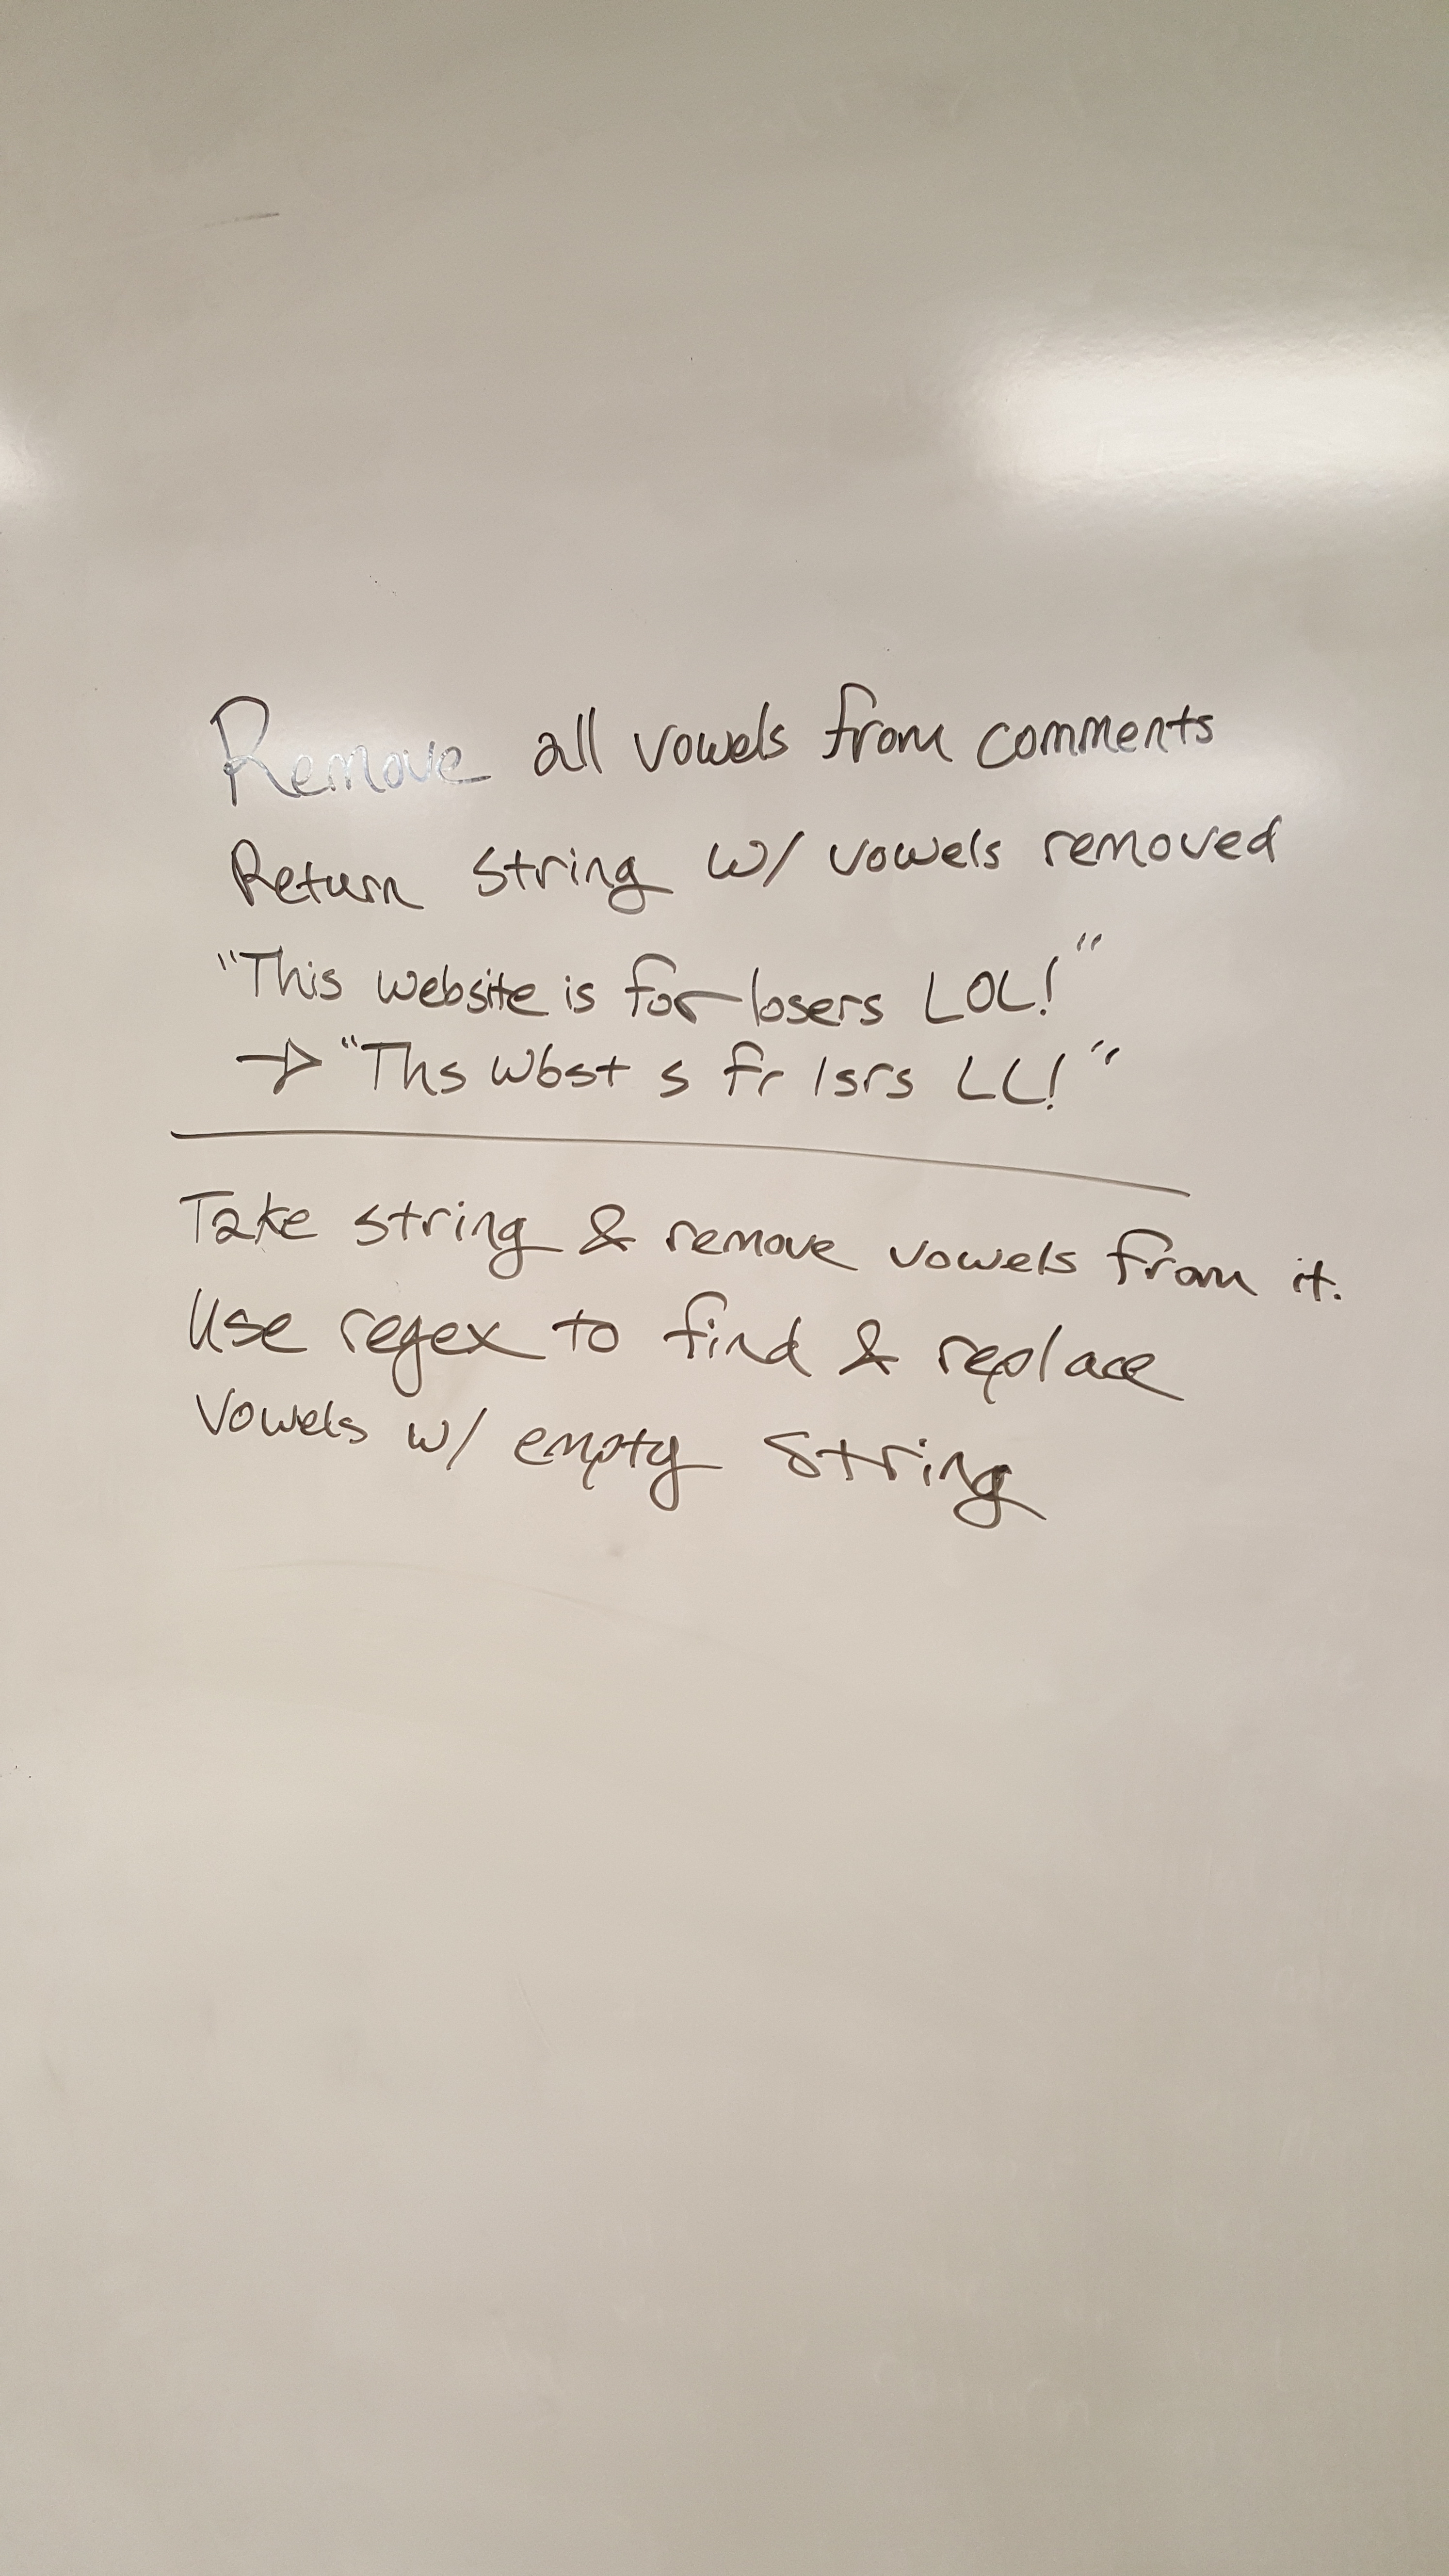 Remove all vowels from comments
Return string w/ vowels removed
"This website is for losers LOL!"
→ "Ths wbst s fr lsrs LL!"
Take string & remove vowels from it.
Use regex to find & replace
vowels w/ empty string